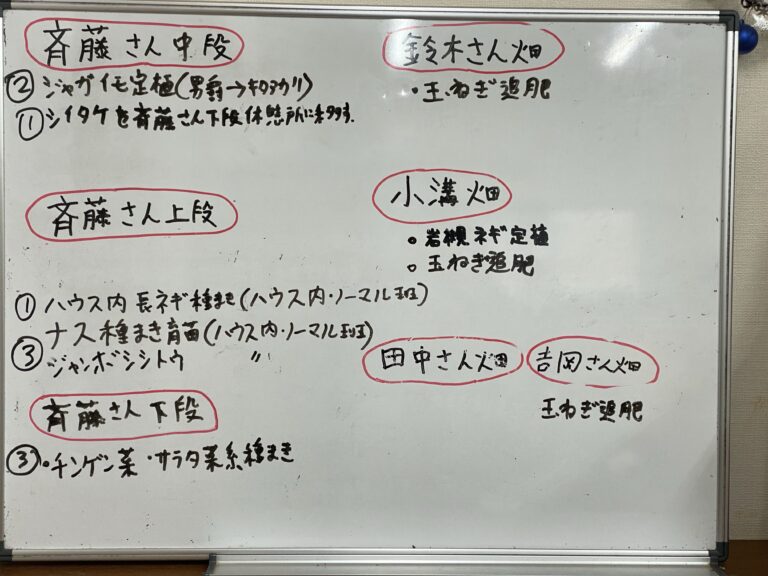 斉藤さん中段
② ジャガイモ定植(男爵→キタアカリ)
① シイタケを斉藤さん下段休憩所に移動す.
斉藤さん上段
① ハウス内 長ネギ種まき(ハウス内・ノーマル班)
ナス種まき育苗(ハウス内・ノーマル班)
③ ジャンボシシトウ 〃
斉藤さん下段
③ ・チンゲン菜・サラダ菜系種まき
鈴木さん畑
・玉ねぎ追肥
小溝畑
○ 岩槻ネギ定植
○ 玉ねぎ追肥
田中さん畑
吉岡さん畑
玉ねぎ追肥